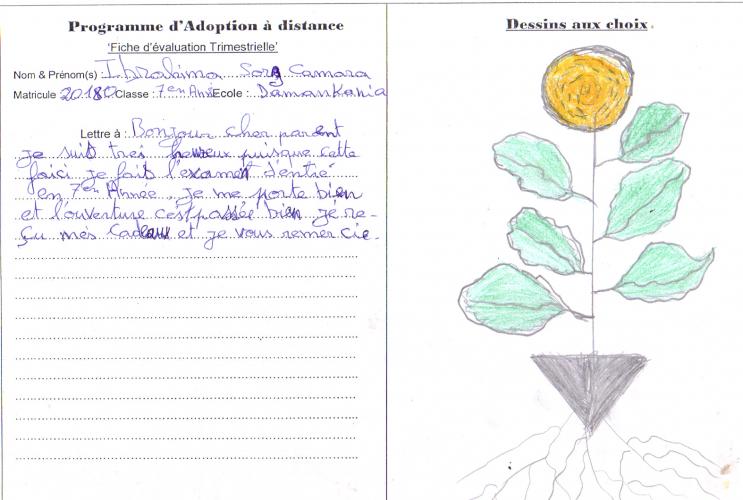 Programme d'Adoption à distance
'Fiche d'évaluation Trimestrielle'
Nom & Prénom(s) Ibrahima Sory Camara
Matricule 20180 Classe : 7en Année Ecole : Damankania
Lettre à : Bonjour cher parent
je suit très heureux puisque cette
foici je fait l'examen d'entré
en 7en Année, je me porte bien
et l'ouverture c'est passée bien j'é re-
çu mes Cadeaux et je vous remercie.
Dessins aux choix.